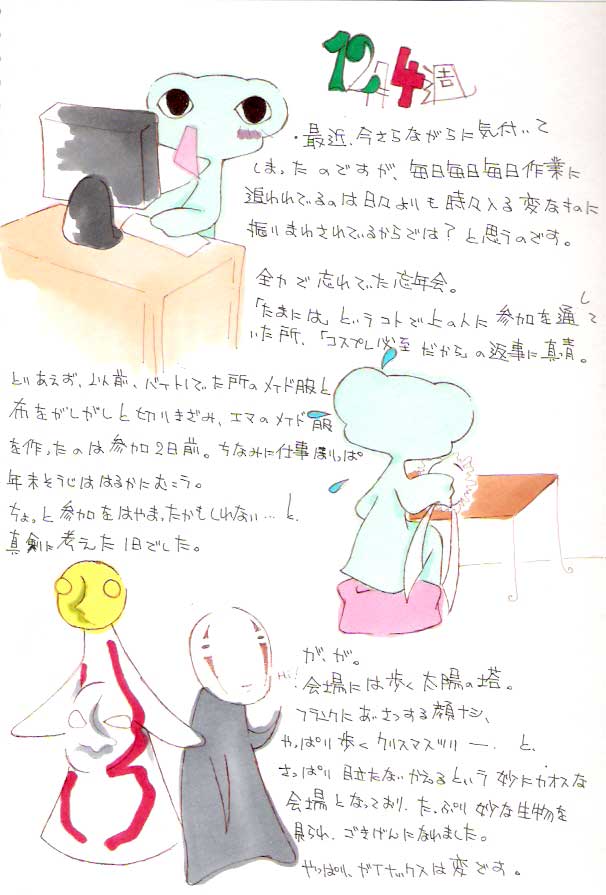 12月4週
・最近、今さらながらに気付いて
しまったのですが、毎日毎日毎日作業に
追われているのは日々よりも時々入る変なものに
振りまわされているからでは？と思うのです。
全力で忘れていた忘年会。
「たまには」というコトで上の人に参加を通して
いた所、「コスプレ必至だから」の返事に真青。
とりあえず、以前、バイトしていた所のメイド服と
布をがしがしと切りきざみ、エマのメイド服
を作ったのは参加2日前。ちなみに仕事ほりっぱ。
年末そうじははるかにむこう。
ちょっと参加をはやまったかもしれない…と、
真剣に考えた1日でした。
が、が。
Hi!
会場には歩く太陽の塔。
フランクにあいさつする顔ナシ、
やっぱり歩くクリスマスツリー、と、
さっぱり目立たないかえるという妙にカオスな
会場となっており、たっぷり妙な生物を
見られ、ごきげんになれました。
やっぱり、ガイナックスは変です。